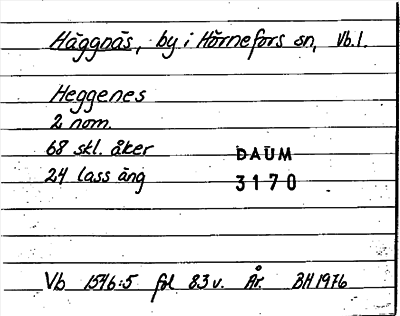 Häggnäs, by i Hörnefors sn, Vb.l.
Heggenes
2 nom.
68 skl. åker
24 lass äng
DAUM
3170
Vb 1546:5 fol 83 v. År. BH 1976